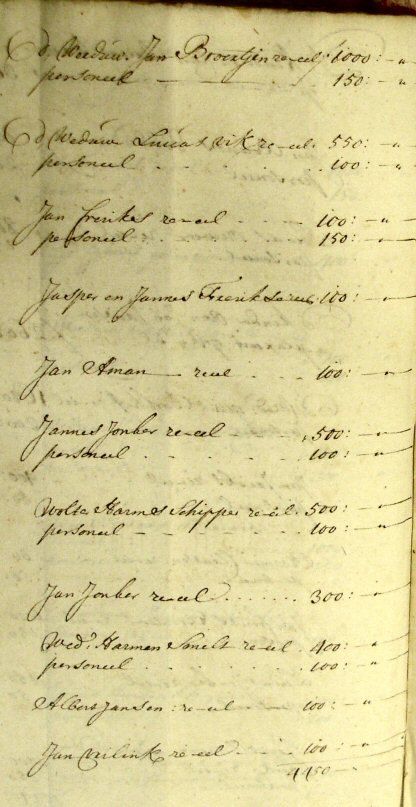 d Weduw. Jan Broertjen re-eel f 1000: - "
personeel - 150: - "
d Weduw Lucas Vik re-eel. 550: - "
personeel . . . . 100: - "
Jan frerikes re-eel . . . 100: - "
personeel . . . . 150: -
Jasper en Jannes Frerikse reeel 100: - "
Jan Aman - reeel . . 100: - "
Jannes Jonker re-eel . 500: - "
personeel . . . . 100: - "
Wolter Harmes Schipper re-eel. 500: - "
personeel - - . . 100: - "
Jan Jonker re-eel . . . . . 300: - "
Wed. Harmen Smelt re-eel. 400: - "
personeel . . . . 100: - "
Albert Janssen: re-eel . . 100: - "
Jan Veilink re-eel . . . 100: - "
4450 - "